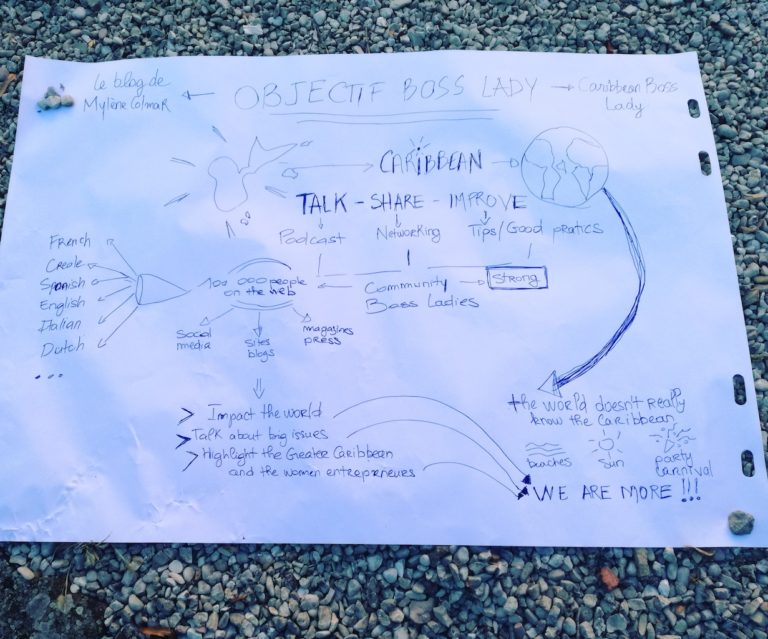 Le blog de
Mylène Colmar
OBJECTIF BOSS LADY
Caribbean Boss
Lady
CARIBBEAN
TALK - SHARE - IMPROVE
Podcast
Networking
Tips/Good pratics
French
Creole
Spanish
English
Italian
Dutch
...
100 000 people
on the web
Community
Boss Ladies
Strong
Social
media
Sites
blogs
magazines
press
> Impact the world
> Talk about big issues
> Highlight the Greater Caribbean
and the women entrepreneurs
the world doesn't really
know the Caribbean
beaches
sun
party
carnival
WE ARE MORE !!!